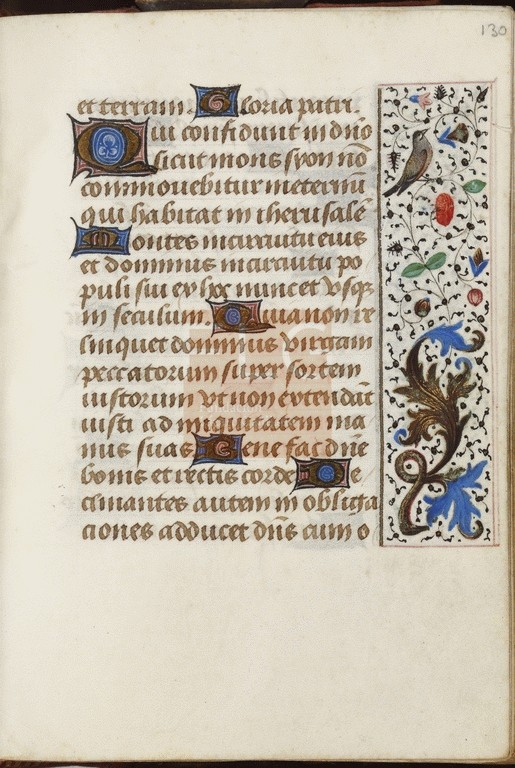 130
et terram. Gloria patri.
Qui confidunt in dño
sicut mons syon nō
commouebitur ineternū
qui habitat in iherusalē
Montes incircuitu eius
et dominus incircuitu po
puli sui ex hoc nunc et vsq
in seculum. Quia non re
linquet dominus virgam
peccatorum super sortem
iustorum vt non extendāt
iusti ad iniquitatem ma
nus suas Bene fac dñe
bonis et rectis corde De
clinantes autem in obliga
ciones adducet dñs cum o